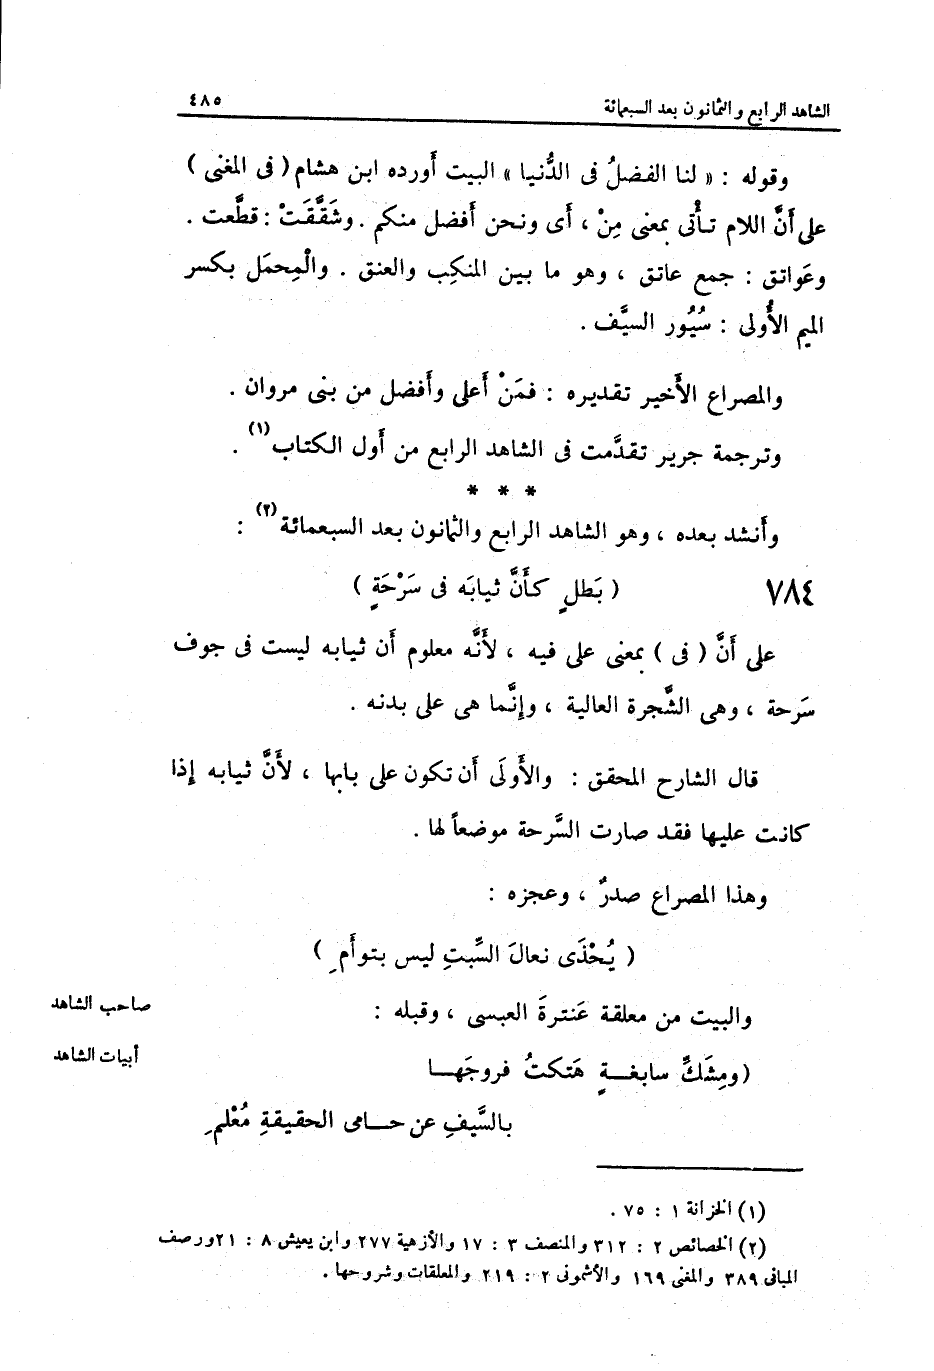 الشاهد الرابع والثمانون بعد السبعمائة ٤٨٥
وقوله : « لنا الفضلُ فى الدُّنيا » البيت أورده ابن هشام ( فى المغنى )
على أنَّ اللام تأْتى بمعنى مِنْ ، أى ونحن أفضل منكم . وشَقَّقَتْ : قطَّعت .
وعَواتق : جمع عاتق ، وهو ما بين المنكِب والعنق . والْمِحمَل بكسر
الميم الأُولى : سُيُور السيَّف .
والمصراع الأخير تقديره : فمَنْ أعلى وأفضل من بنى مروان .
وترجمة جرير تقدَّمت فى الشاهد الرابع من أول الكتاب (١) .
* * *
وأنشد بعده ، وهو الشاهد الرابع والثمانون بعد السبعمائة (٢) :
٧٨٤ ( بَطلٍ كأنَّ ثيابَه فى سَرْحَةٍ )
على أنَّ ( فى ) بمعنى على فيه ، لأنَّه معلوم أن ثيابه ليست فى جوف
سَرحة ، وهى الشَّجرة العالية ، وإنَّما هى على بدنه .
قال الشارح المحقق : والأَولَى أن تكون على بابها ، لأنَّ ثيابه إذا
كانت عليها فقد صارت السَّرحة موضعاً لها .
وهذا المصراع صدرٌ ، وعجزه :
( يُحْذَى نعالَ السِّبتِ ليس بتوأَمِ )
والبيت من معلقة عَنترةَ العبسى ، وقبله :
صاحب الشاهد
( ومِشَكِّ سابغـــةٍ هَتكتُ فروجَهـــا
أبيات الشاهد
بالسَّيفِ عن حـــامى الحقيقةِ مُعْلمِ
(١) الخزانة ١ : ٧٥ .
(٢) الخصائص ٢ : ٣١٢ والمنصف ٣ : ١٧ والأزهية ٢٧٧ وابن يعيش ٨ : ٢١ ورصف
المبانى ٣٨٩ والمغنى ١٦٩ والأشمونى ٢ : ٢١٩ والمعلقات وشروحها .